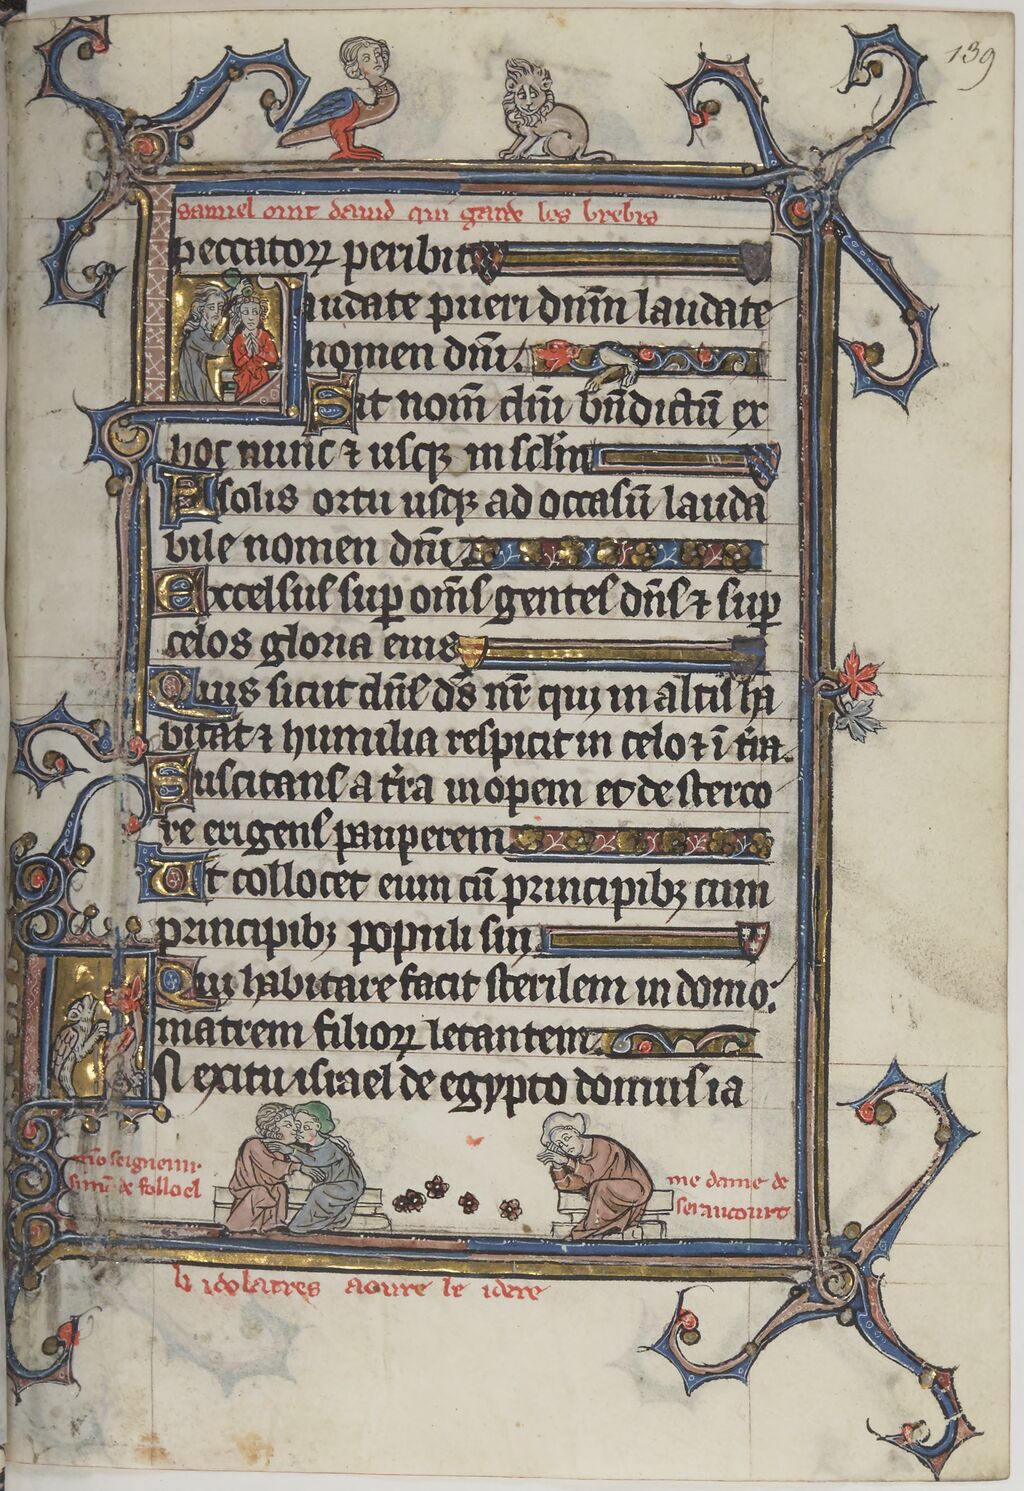 139
samuel oint dauid qui garde les brebis
peccatoꝝ peribit
Laudate pueri dnm̄ laudate
nomen dnī.
Sit nom̄ dnī bn̄dictū ex
hoc nunc ⁊ usqꝫ in sclm̄
A solis ortu usqꝫ ad occasū lauda
bile nomen dnī
Excelsus sup om̄s gentes dn̄s ⁊ sup
celos gloria eius
Quis sicut dn̄s ds̄ nr̄ qui in altis ha
bitat ⁊ humilia respicit in celo ⁊ ī tr̄a.
Suscitans a tr̄ra inopem et de sterco
re erigens pauperem
Ut collocet eum cū principibꝫ cum
principibꝫ populi sui
Qui habitare facit sterilem in domo:
matrem filioꝝ letantem.
IN exitu israel de egypto domus ia
mō seigneur
simō de folloel
me dame de
seraucourt
li idolatres aoure le idere